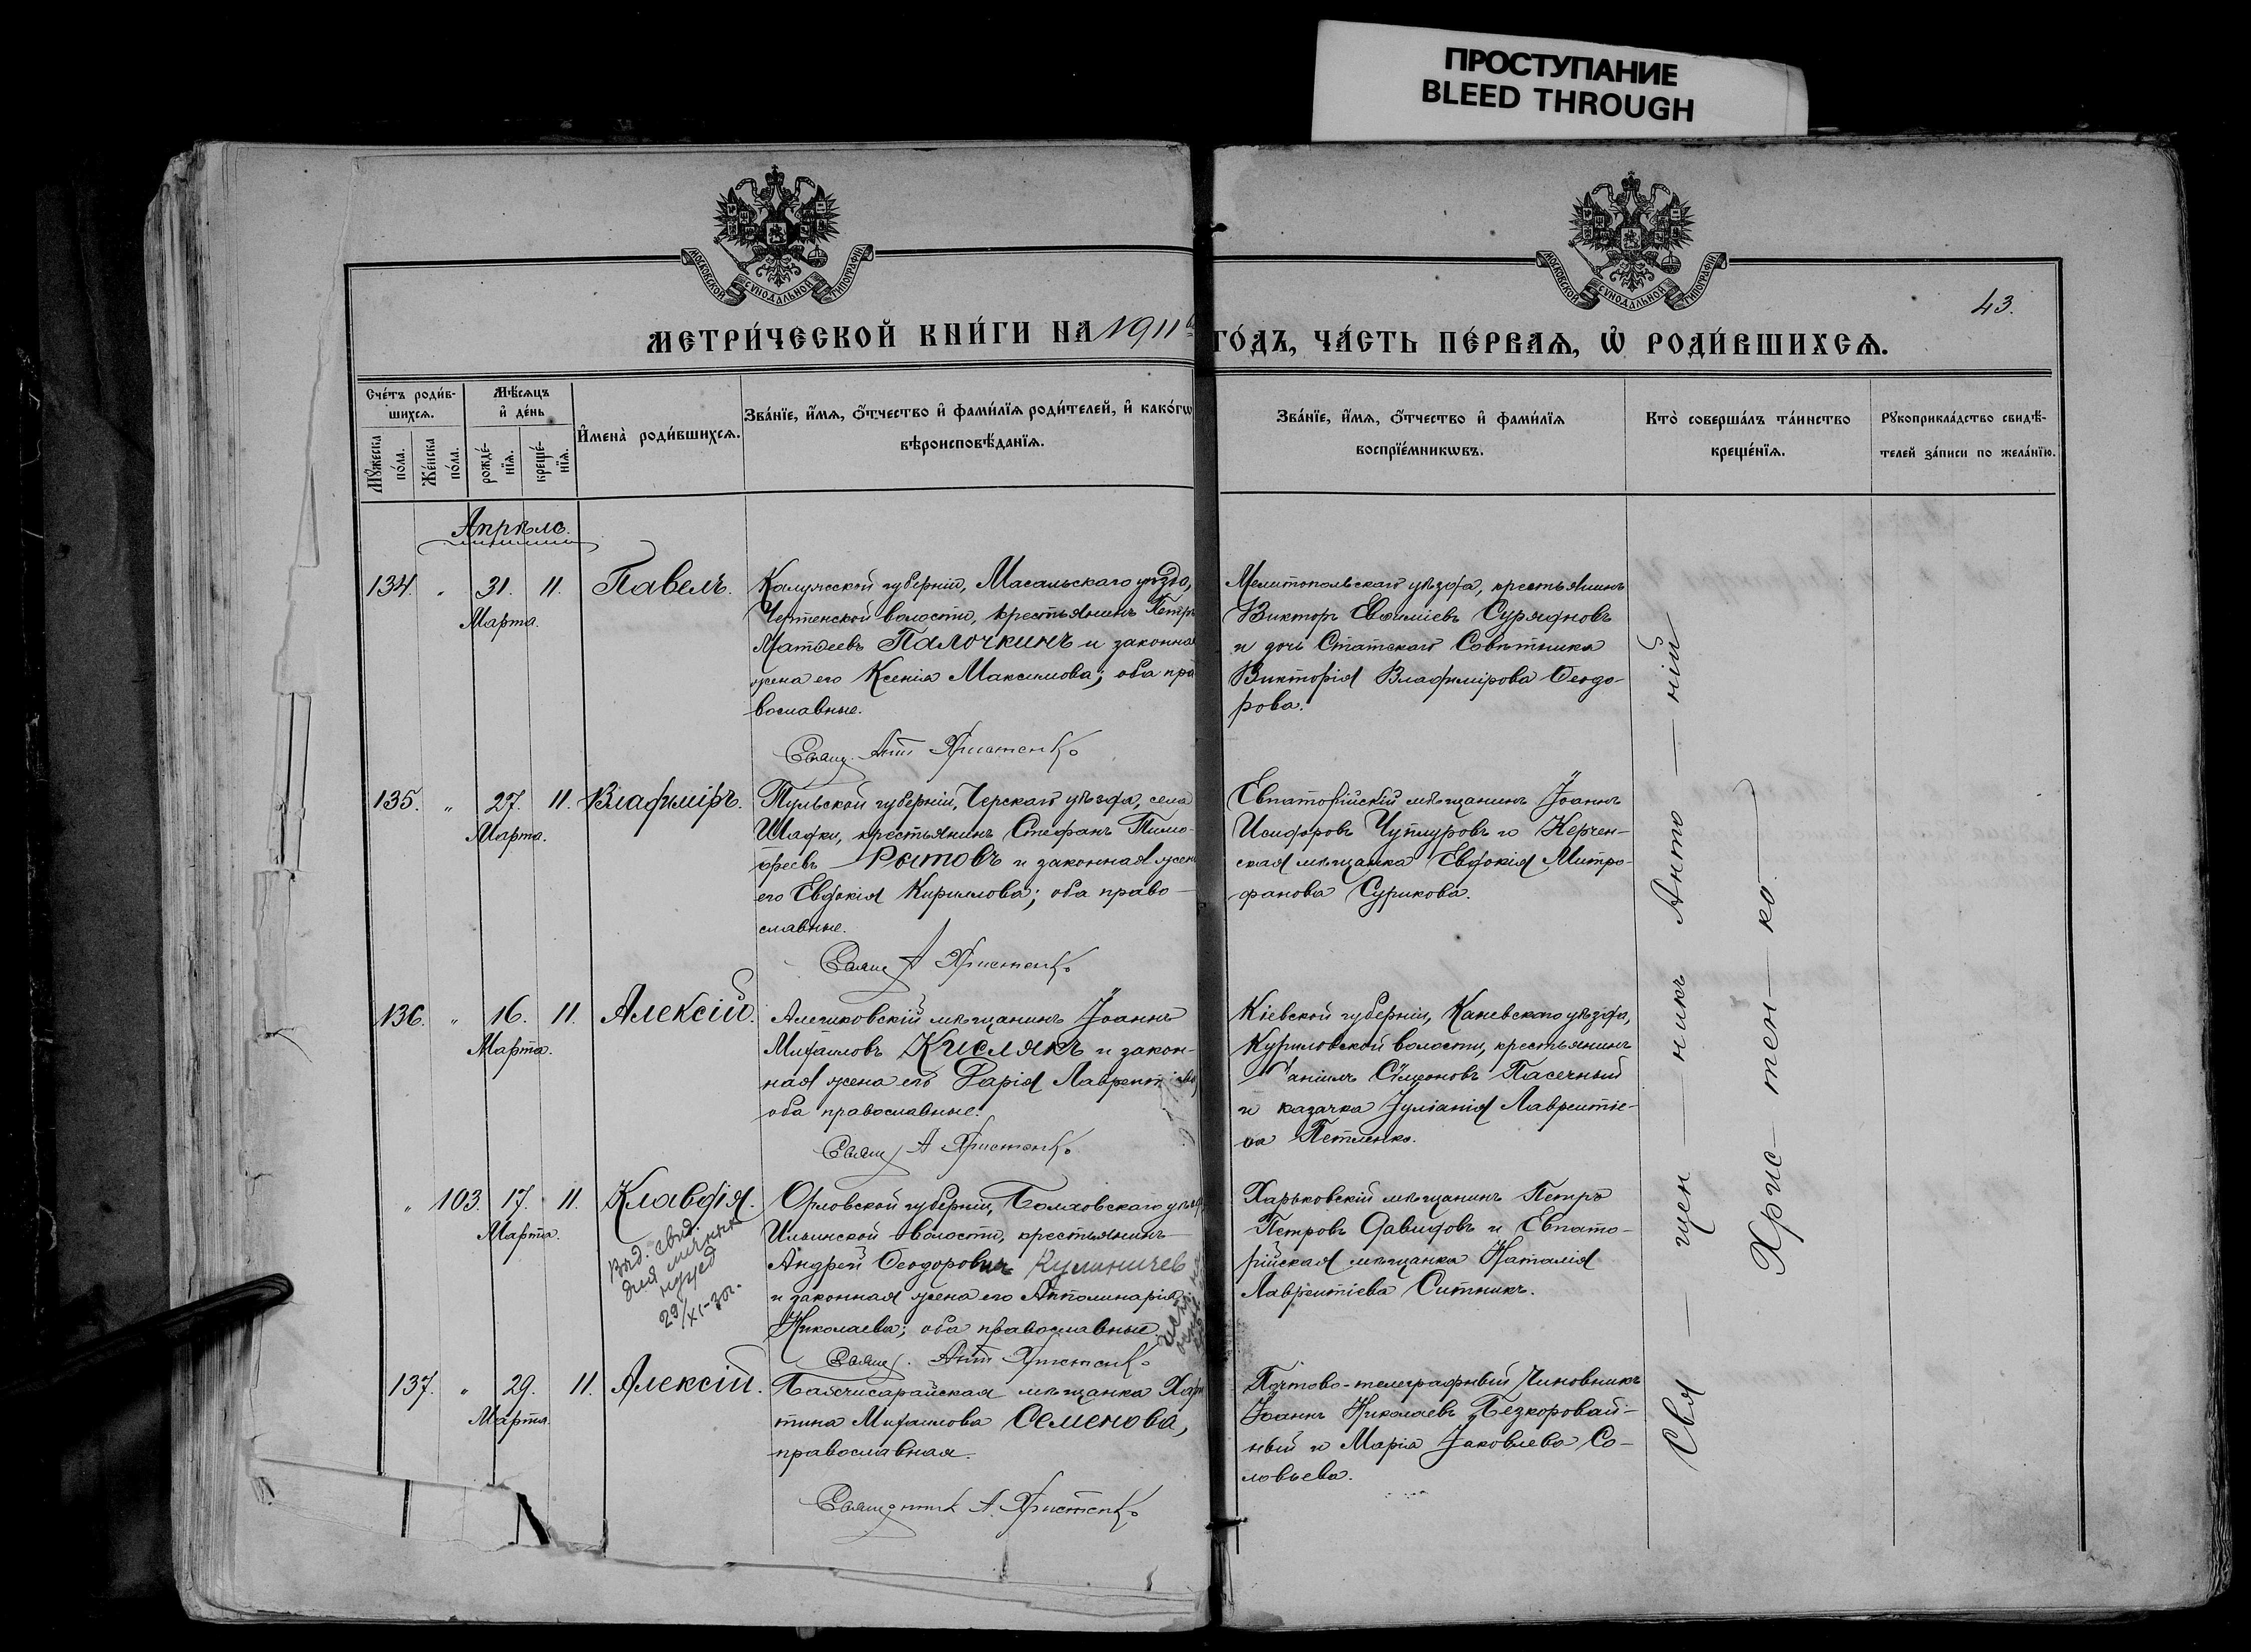 ПРОСТУПАНИЕ
BLEED THROUGH
МОСКОВСКОЙ СѴНОДАЛЬНОЙ ТИПОГРАФІИ
МОСКОВСКОЙ СѴНОДАЛЬНОЙ ТИПОГРАФІИ
43.
МЕТРИ́ЧЕСКОЙ КНИ́ГИ НА 1911 ГО́ДЪ, ЧА́СТЬ ПЕ́РВАѦ, Ѡ҆ РОДИ́ВШИХСѦ.
Сче́тъ роди́в-
шихсѧ.
Мꙋ́жеска по́ла.
Же́нска по́ла.
Мѣ́сѧцъ и҆ де́нь
рожде́-
нїѧ.
креще́-
нїѧ.
И҆мена̀ роди́вшихсѧ.
Зва́нїе, и҆́мѧ, ѻ҆́тчество и҆ фами́лїѧ роди́телей, и҆ како́гѡ
вѣроисповѣ́данїѧ.
Зва́нїе, и҆́мѧ, ѻ҆́тчество и҆ фами́лїѧ
воспрїе́мникѡвъ.
Кто̀ соверша́лъ та́инство
креще́нїѧ.
Рꙋкоприкла́дство свидѣ́-
телей за́писи по жела́нїю.
Апрѣль.
134. " 31. 11. Павелъ.
Марта.
Калужской губерніи, Масальскаго уѣзда,
волости, крестьянинъ Петръ
Матѳеевъ Палочкинъ и законная
жена его Ксенія Максимова; оба пра
вославные.
Свящ. Ант Христенко
Мелитопольскаго уѣзда, крестьянинъ
Викторъ Евѳиміевъ
и дочь Статскаго Совѣтника
Викторія Владимірова Ѳеодо-
рова.
135. " 27. 11. Владиміръ.
Марта.
Тульской губерніи, Черскаго уѣзда, села
Шадки, крестьянинъ Стефанъ Тимо-
ѳеевъ Рытовъ и законная жена
его Евдокія Кириллова; оба право-
славные.
Свящ А Христенко
Евпаторійскій мѣщанинъ Іоаннъ
Исидоровъ и Керчен-
ская мѣщанка Евдокія Митро-
фанова Сурикова.
136. " 16. 11. Алексій.
Марта.
Алешковскій мѣщанинъ Іоаннъ
Михаиловъ Кислякъ и закон-
ная жена его Дарія Лаврентіева,
оба православные.
Свящ А Христенко
Кіевской губерніи, Каневскаго уѣзда,
Куриловской волости, крестьянинъ
Даніилъ Сѵмеоновъ Пасечный
и казачка Іуліанія Лаврентіе-
ва Петленко.
" 103. 17. 11. Клавдія.
Марта.
Выд. свид.
для личных
нужд
29/XI-30г.
Орловской губерніи, Болховскаго уѣзда
Ильинской волости, крестьянинъ
Андрей Ѳеодоровъ Кулиничев
и законная жена его Апполинарія
Николаева; оба православные.
Свящ. Ант Христенко
Харьковскій мѣщанинъ Петръ
Петровъ Давидовъ и Евпато-
рійская мѣщанка Наталія
Лаврентіева Ситникъ.
137. " 29. 11. Алексій.
Марта.
Бахчисарайская мѣщанка Хари
тина Михаилова Семенова,
православная.
Священникъ А. Христенко
Почтово-телеграфный Чиновникъ
Іоаннъ Николаевъ Безкоровай-
ный и Марія Іаковлева Со-
ловьева.
Свя — щен — никъ Анто — ній
Хрис — тен — ко